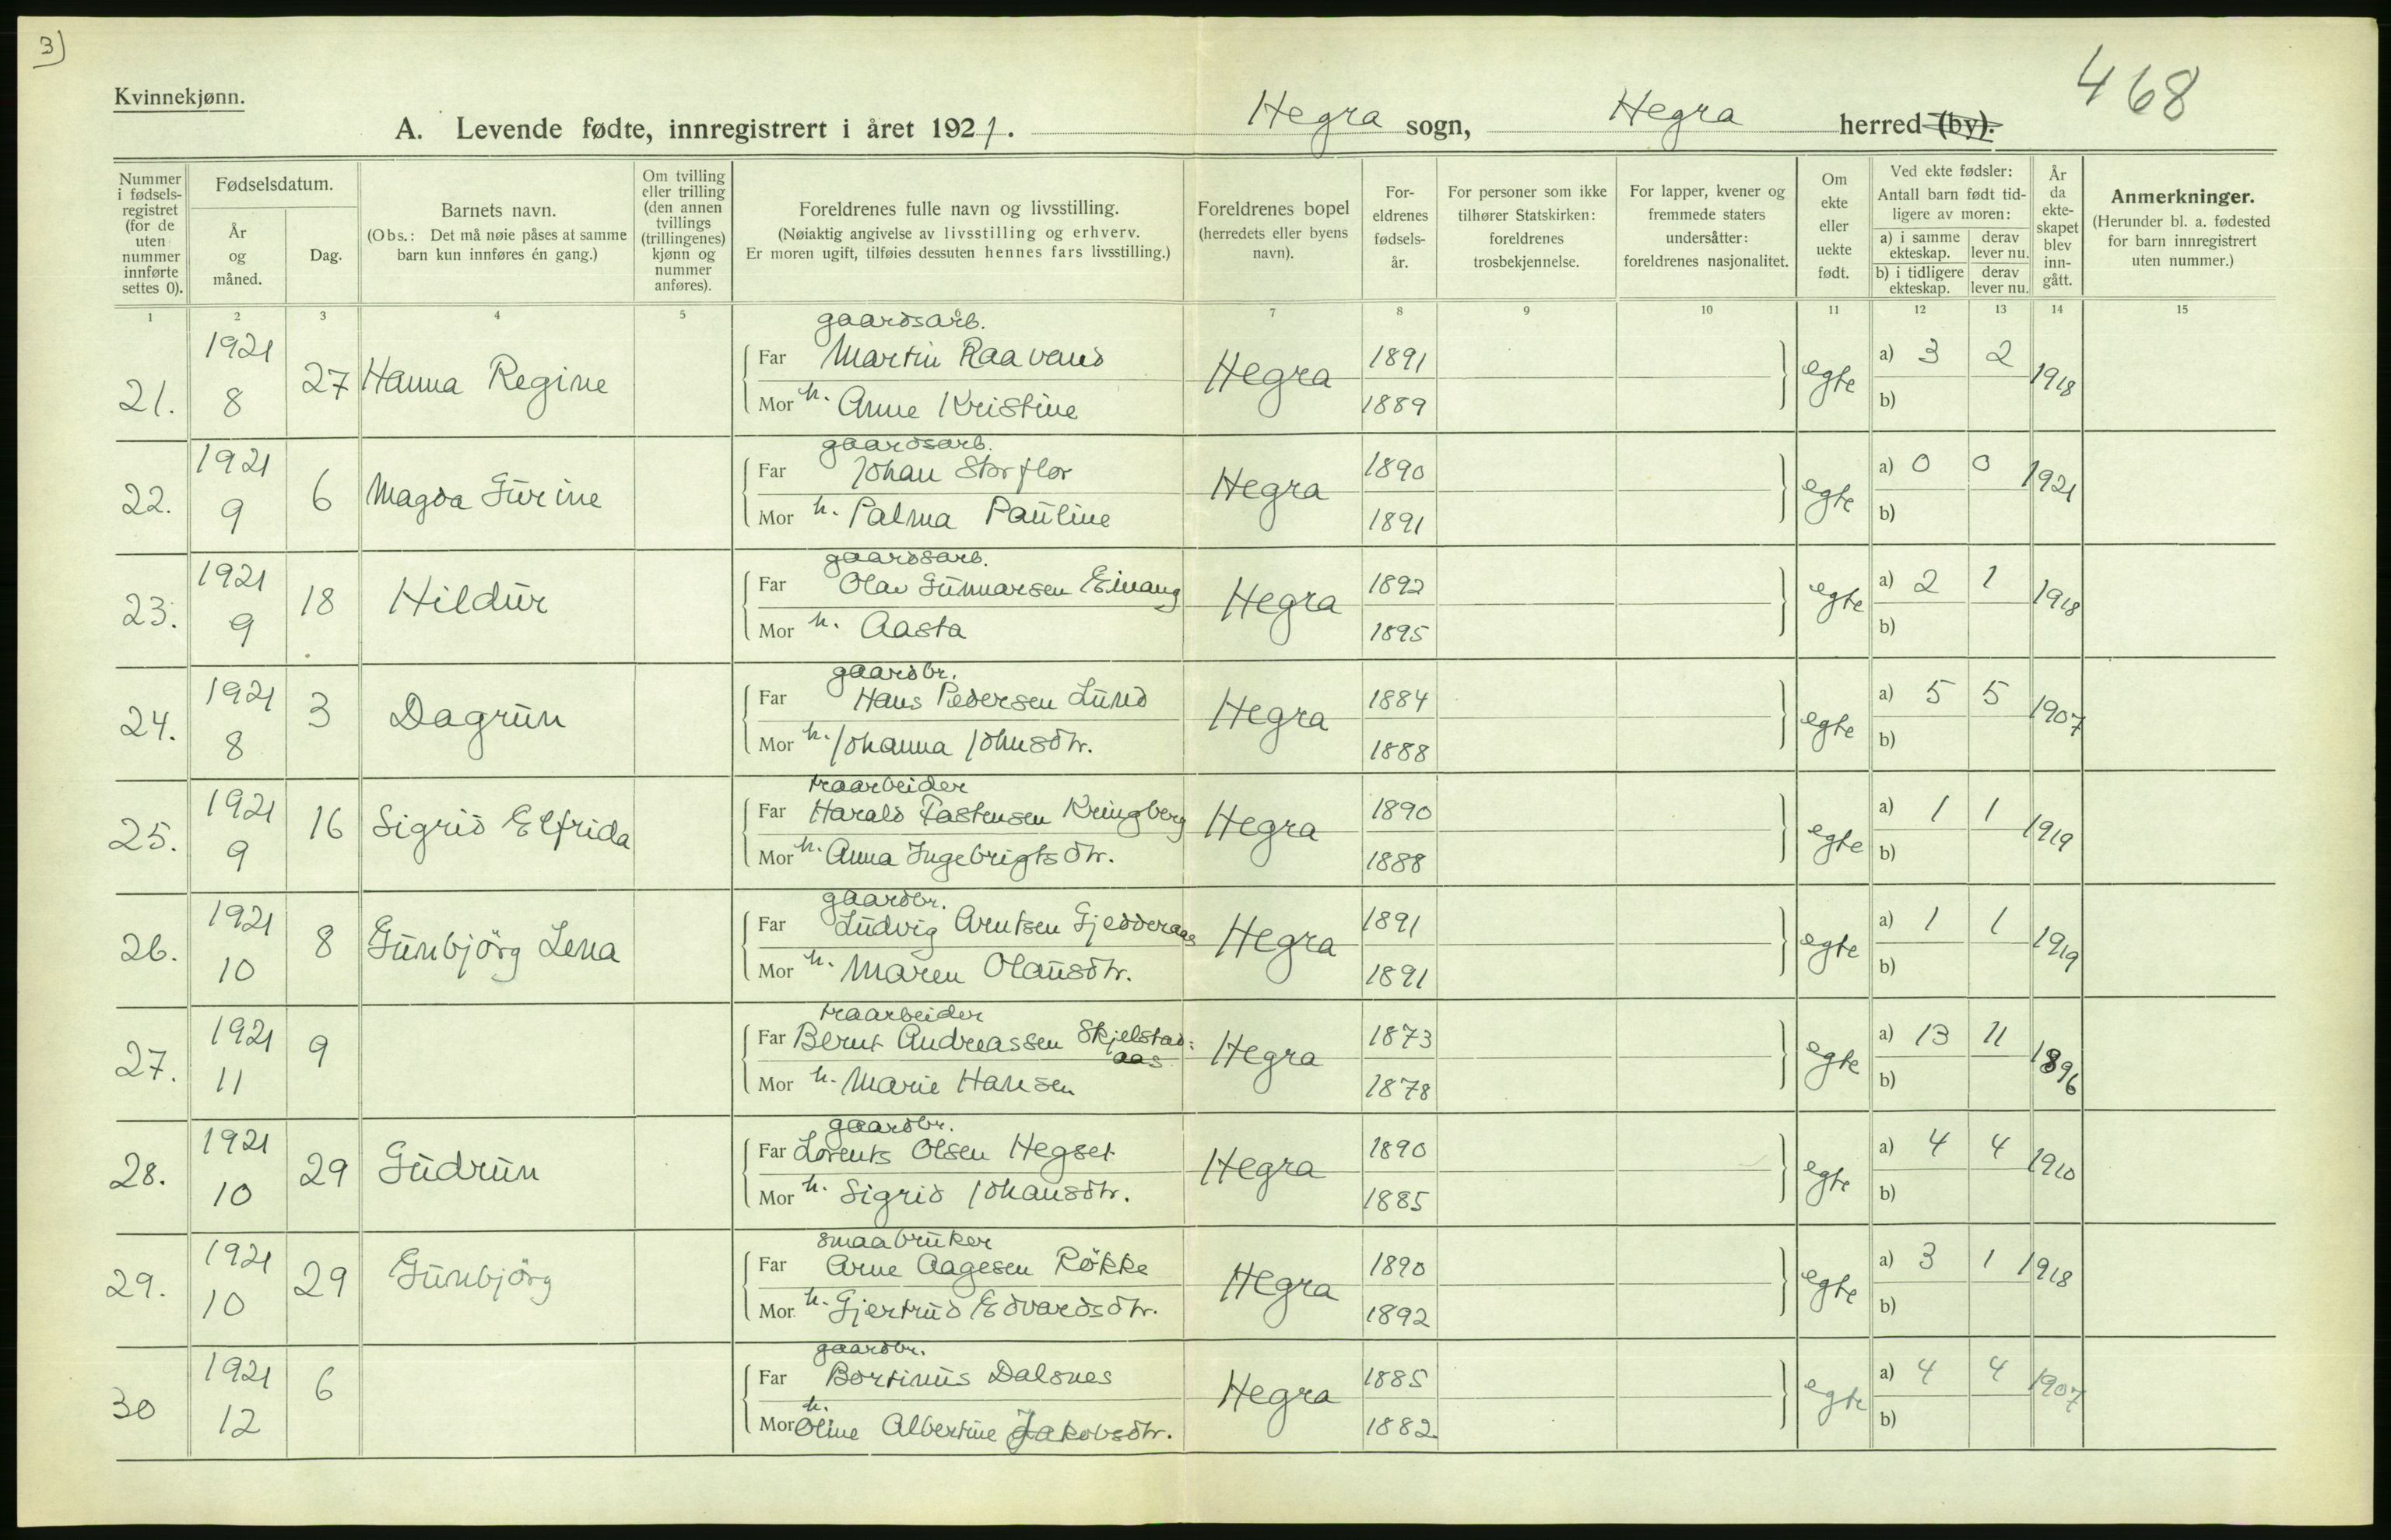 3)
468
Kvinnekjønn.
A. Levende fødte, innregistrert i året 1921. Hegra sogn, Hegra herred (by).
Nummer i fødsels-registret (for de uten nummer innførte settes 0).
Fødselsdatum.
År og måned.
Dag.
Barnets navn.
(Obs.: Det må nøie påses at samme barn kun innføres én gang.)
Om tvilling eller trilling (den annen tvillings (trillingenes) kjønn og nummer anføres).
Foreldrenes fulle navn og livsstilling.
(Nøiaktig angivelse av livsstilling og erhverv.
Er moren ugift, tilføies dessuten hennes fars livsstilling.)
Foreldrenes bopel (herredets eller byens navn).
For-eldrenes fødsels-år.
For personer som ikke tilhører Statskirken: foreldrenes trosbekjennelse.
For lapper, kvener og fremmede staters undersåtter: foreldrenes nasjonalitet.
Om ekte eller uekte født.
Ved ekte fødsler:
Antall barn født tid-ligere av moren:
a) i samme ekteskap. derav lever nu.
b) i tidligere ekteskap. derav lever nu.
År da ekte-skapet blev inn-gått.
Anmerkninger.
(Herunder bl. a. fødested for barn innregistrert uten nummer.)
1 2 3 4 5 7 8 9 10 11 12 13 14 15
gaardsarb.
21. 1921 8 27 Hanna Regine Far Martin Raavand Hegra 1891 egte a) 3 2 1918
Mor h. Anne Kristine 1889 b)
gaardsarb.
22. 1921 9 6 Magda Gurine Far Johan Storflor Hegra 1890 egte a) 0 0 1921
Mor h. Palma Pauline 1891 b)
gaardsarb.
23. 1921 9 18 Hildur Far Olav Gunnarsen Einang Hegra 1892 egte a) 2 1 1918
Mor h. Aasta 1895 b)
gaardbr.
24. 1921 8 3 Dagrun Far Hans Pedersen Lund Hegra 1884 egte a) 5 5 1907
Mor h. Johanna Johnsdtr. 1888 b)
traarbeider
25. 1921 9 16 Sigrid Elfrida Far Harald Tastensen Kringberg Hegra 1890 egte a) 1 1 1919
Mor h. Anna Ingebrigtsdtr. 1888 b)
gaardbr.
26. 1921 10 8 Gunbjörg Lena Far Ludvig Arntsen Gjedderaas Hegra 1891 egte a) 1 1 1919
Mor h. Maren Olausdtr. 1891 b)
traarbeider
27. 1921 11 9 Far Bernt Andreassen Skjelstad: aas Hegra 1873 egte a) 13 11 1896
Mor h. Marie Hansen 1878 b)
gaardbr.
28. 1921 10 29 Gudrun Far Lorents Olsen Hegset Hegra 1890 egte a) 4 4 1910
Mor h. Sigrid Johansdtr. 1885 b)
smaabruker
29. 1921 10 29 Gunbjörg Far Arne Aagesen Rökke Hegra 1890 egte a) 3 1 1918
Mor h. Gjertrud Edvardsdtr. 1892 b)
gaardbr.
30 1921 12 6 Far Bortinus Dalsnes Hegra 1885 egte a) 4 4 1907
Mor h. Oline Albertine Jakobsdtr. 1882 b)